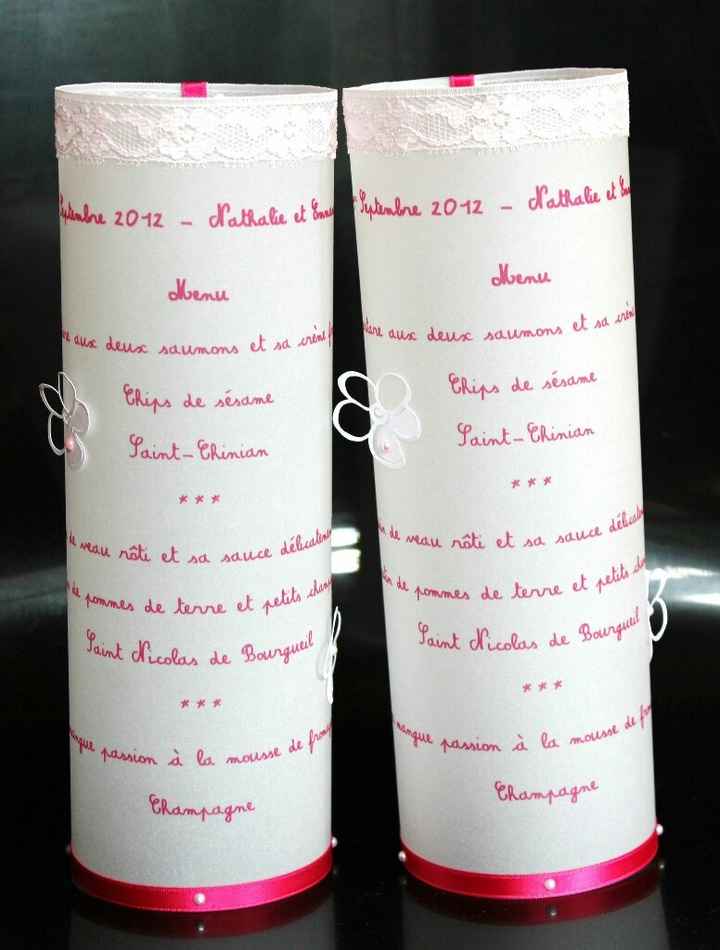 Septembre 2012 - Nathalie et
Menu
aux deux saumons et sa crème
Chips de sésame
Saint-Chinian
***
de veau rôti et sa sauce
de pommes de terre et petits
Saint Nicolas de Bourgueil
***
passion à la mousse de
Champagne
Septembre 2012 - Nathalie et
Menu
aux deux saumons et sa
Chips de sésame
Saint-Chinian
***
de veau rôti et sa sauce
de pommes de terre et petits
Saint Nicolas de Bourgueil
***
mangue passion à la mousse de
Champagne